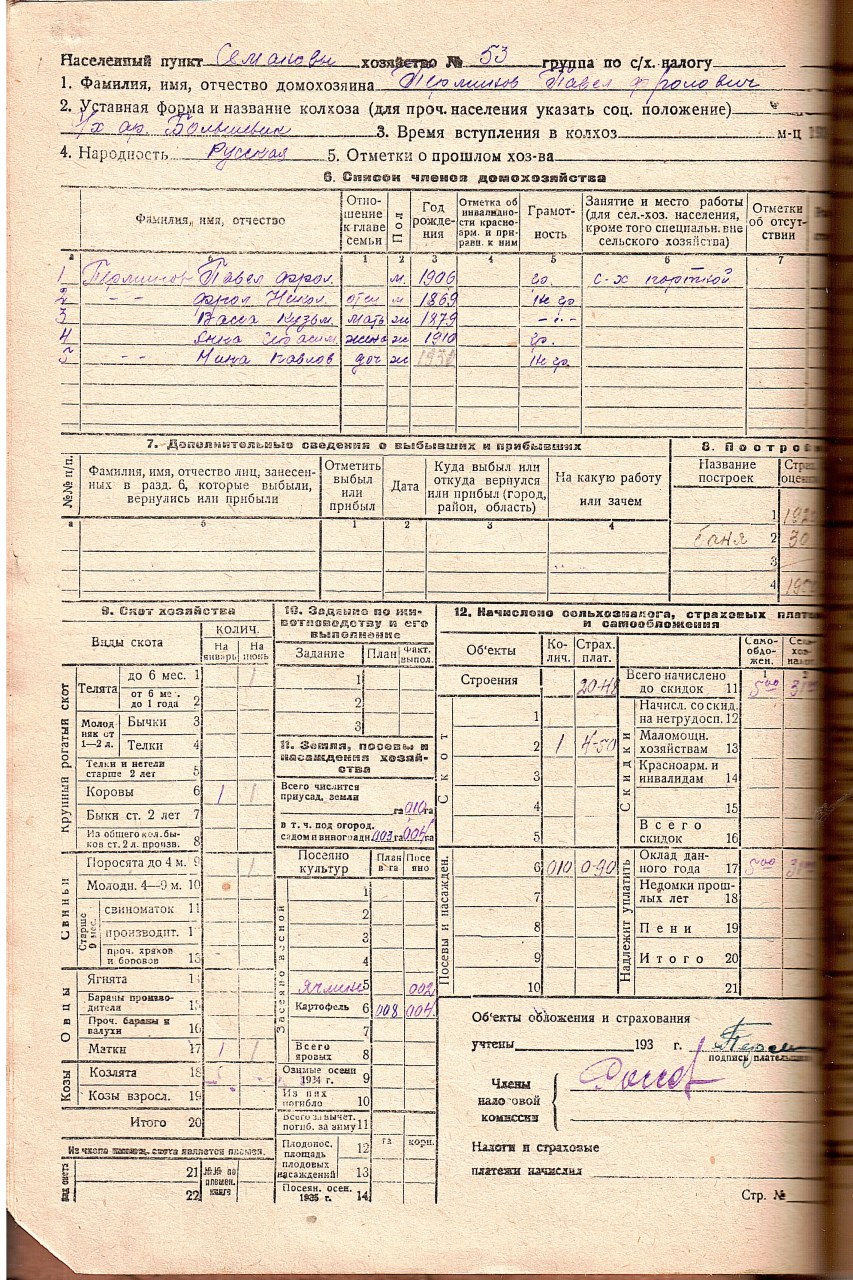 Населенный пункт Семаковы хозяйство № 53 группа по с/х. налогу
1. Фамилия, имя, отчество домохозяина Перминов Павел Фролович
2. Уставная форма и название колхоза (для проч. населения указать соц. положение)
с/х ар. Большевик 3. Время вступления в колхоз м-ц
4. Народность Русская 5. Отметки о прошлом хоз-ва
6. Список членов домохозяйства
Фамилия, имя, отчество
Отно-
шение
к главе
семьи
Пол
Год
рожде-
ния
Отметка об
инвалидно-
сти красно-
арм. и при-
равн. к ним
Грамот-
ность
Занятие и место работы
(для сел.-хоз. населения,
кроме того специальн. вне
сельского хозяйства)
Отметки
об отсут-
ствии
а 1 2 3 4 5 6 7
1 Перминов Павел Фрол. м. 1906 гр. с-х портной
2 -"- Фрол Никол. отец м 1869 н гр
3 Васса Кузьм. мать ж 1879 -"-
4 Анна жена ж 1910 гр.
5 -"- Нина Павлов доч ж н гр.
7. Дополнительные сведения о выбывших и прибывших
№№ п/п.
Фамилия, имя, отчество лиц, занесен-
ных в разд. 6, которые выбыли,
вернулись или прибыли
Отметить
выбыл
или
прибыл
Дата
Куда выбыл или
откуда вернулся
или прибыл (город,
район, область)
На какую работу
или зачем
а б 1 2 3 4
8. Построй
Название
построек
Страх.
оценка
1
баня 2 30
3
4
9. Скот хозяйства
Виды скота
КОЛИЧ.
На
январь
На
июнь
Крупный рогатый скот
Телята
до 6 мес. 1 1
от 6 мес.
до 1 года 2
Молод-
няк от
1—2 л.
Бычки 3
Телки 4
Телки и нетели
старше 2 лет 5
Коровы 6 1 1
Быки ст. 2 лет 7
Из общего кол. бы-
ков ст. 2 л. произв. 8
Свиньи
Поросята до 4 м. 9 1
Молодн. 4—9 м. 10
Старше
9 мес.
свиноматок 11
производит. 1
проч. хряков
и боровов 13
Овцы
Ягнята 1
Бараны произво-
дителя 1
Проч. бараны и
валухи 16
Матки 17 1 1
Козы
Козлята 18
Козы взросл. 19
Итого 20
Из числа скота является племен.
вид скота
21
22
№№ по
племен.
книге
10. Задание по жи-
вотноводству и его
выполнение
Задание План Факт.
выпол.
1
2
3
11. Земля, посевы и
насаждения хозяй-
ства
Всего числится
приусад. земли
га 010 га
в т. ч. под огород.
садом и виноградн. 003 га 004 га
Посеяно
культур
План
в га
Посе
яно
Засеяно весной
1
2
3
4
Ячмень 5 002
Картофель 6 008 004
7
Всего
яровых 8
Озимые осени
1934 г. 9
Из них
погибло 10
Всего за вычет.
погиб. за зиму 11
Плодонос.
площадь
плодовых
насаждений
га корн.
12
13
Посеян. осен.
1935 г. 14
12. Начислено сельхозналога, страховых платеж
и самообложения
Об'екты
Ко-
лич.
Страх.
плат.
Строения 20-48
Скот
1
2 1 4-50
3
4
5
Посевы и насажден.
6 010 0-90
7
8
9
10
Само-
обло-
жен.
Сель-
хоз-
налог
1 2
Всего начислено
до скидок 11 5 00
Скидки
Начисл. со скид.
на нетрудосп. 12
Маломощн.
хозяйствам 13
Красноарм. и
инвалидам 14
15
Всего
скидок 16
Надлежит уплатить
Оклад дан-
ного года 17 5 00
Недомки прош-
лых лет 18
Пени 19
Итого 20
21
Об'екты обложения и страхования
учтены 193 г.
подпись плательщика
Члены
налоговой
комиссии
Налоги и страховые
платежи начислил
Стр. №